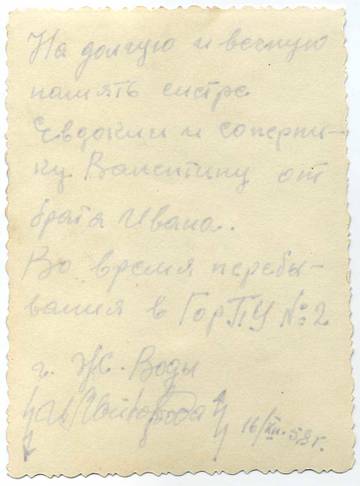 На долгую и вечную
память систре
Евдокии и соперни-
ку Валентину от
брата Ивана.
Во время перебы-
вания в ГорПУ №2
г. Ж. Воды
16/XII-58 г.